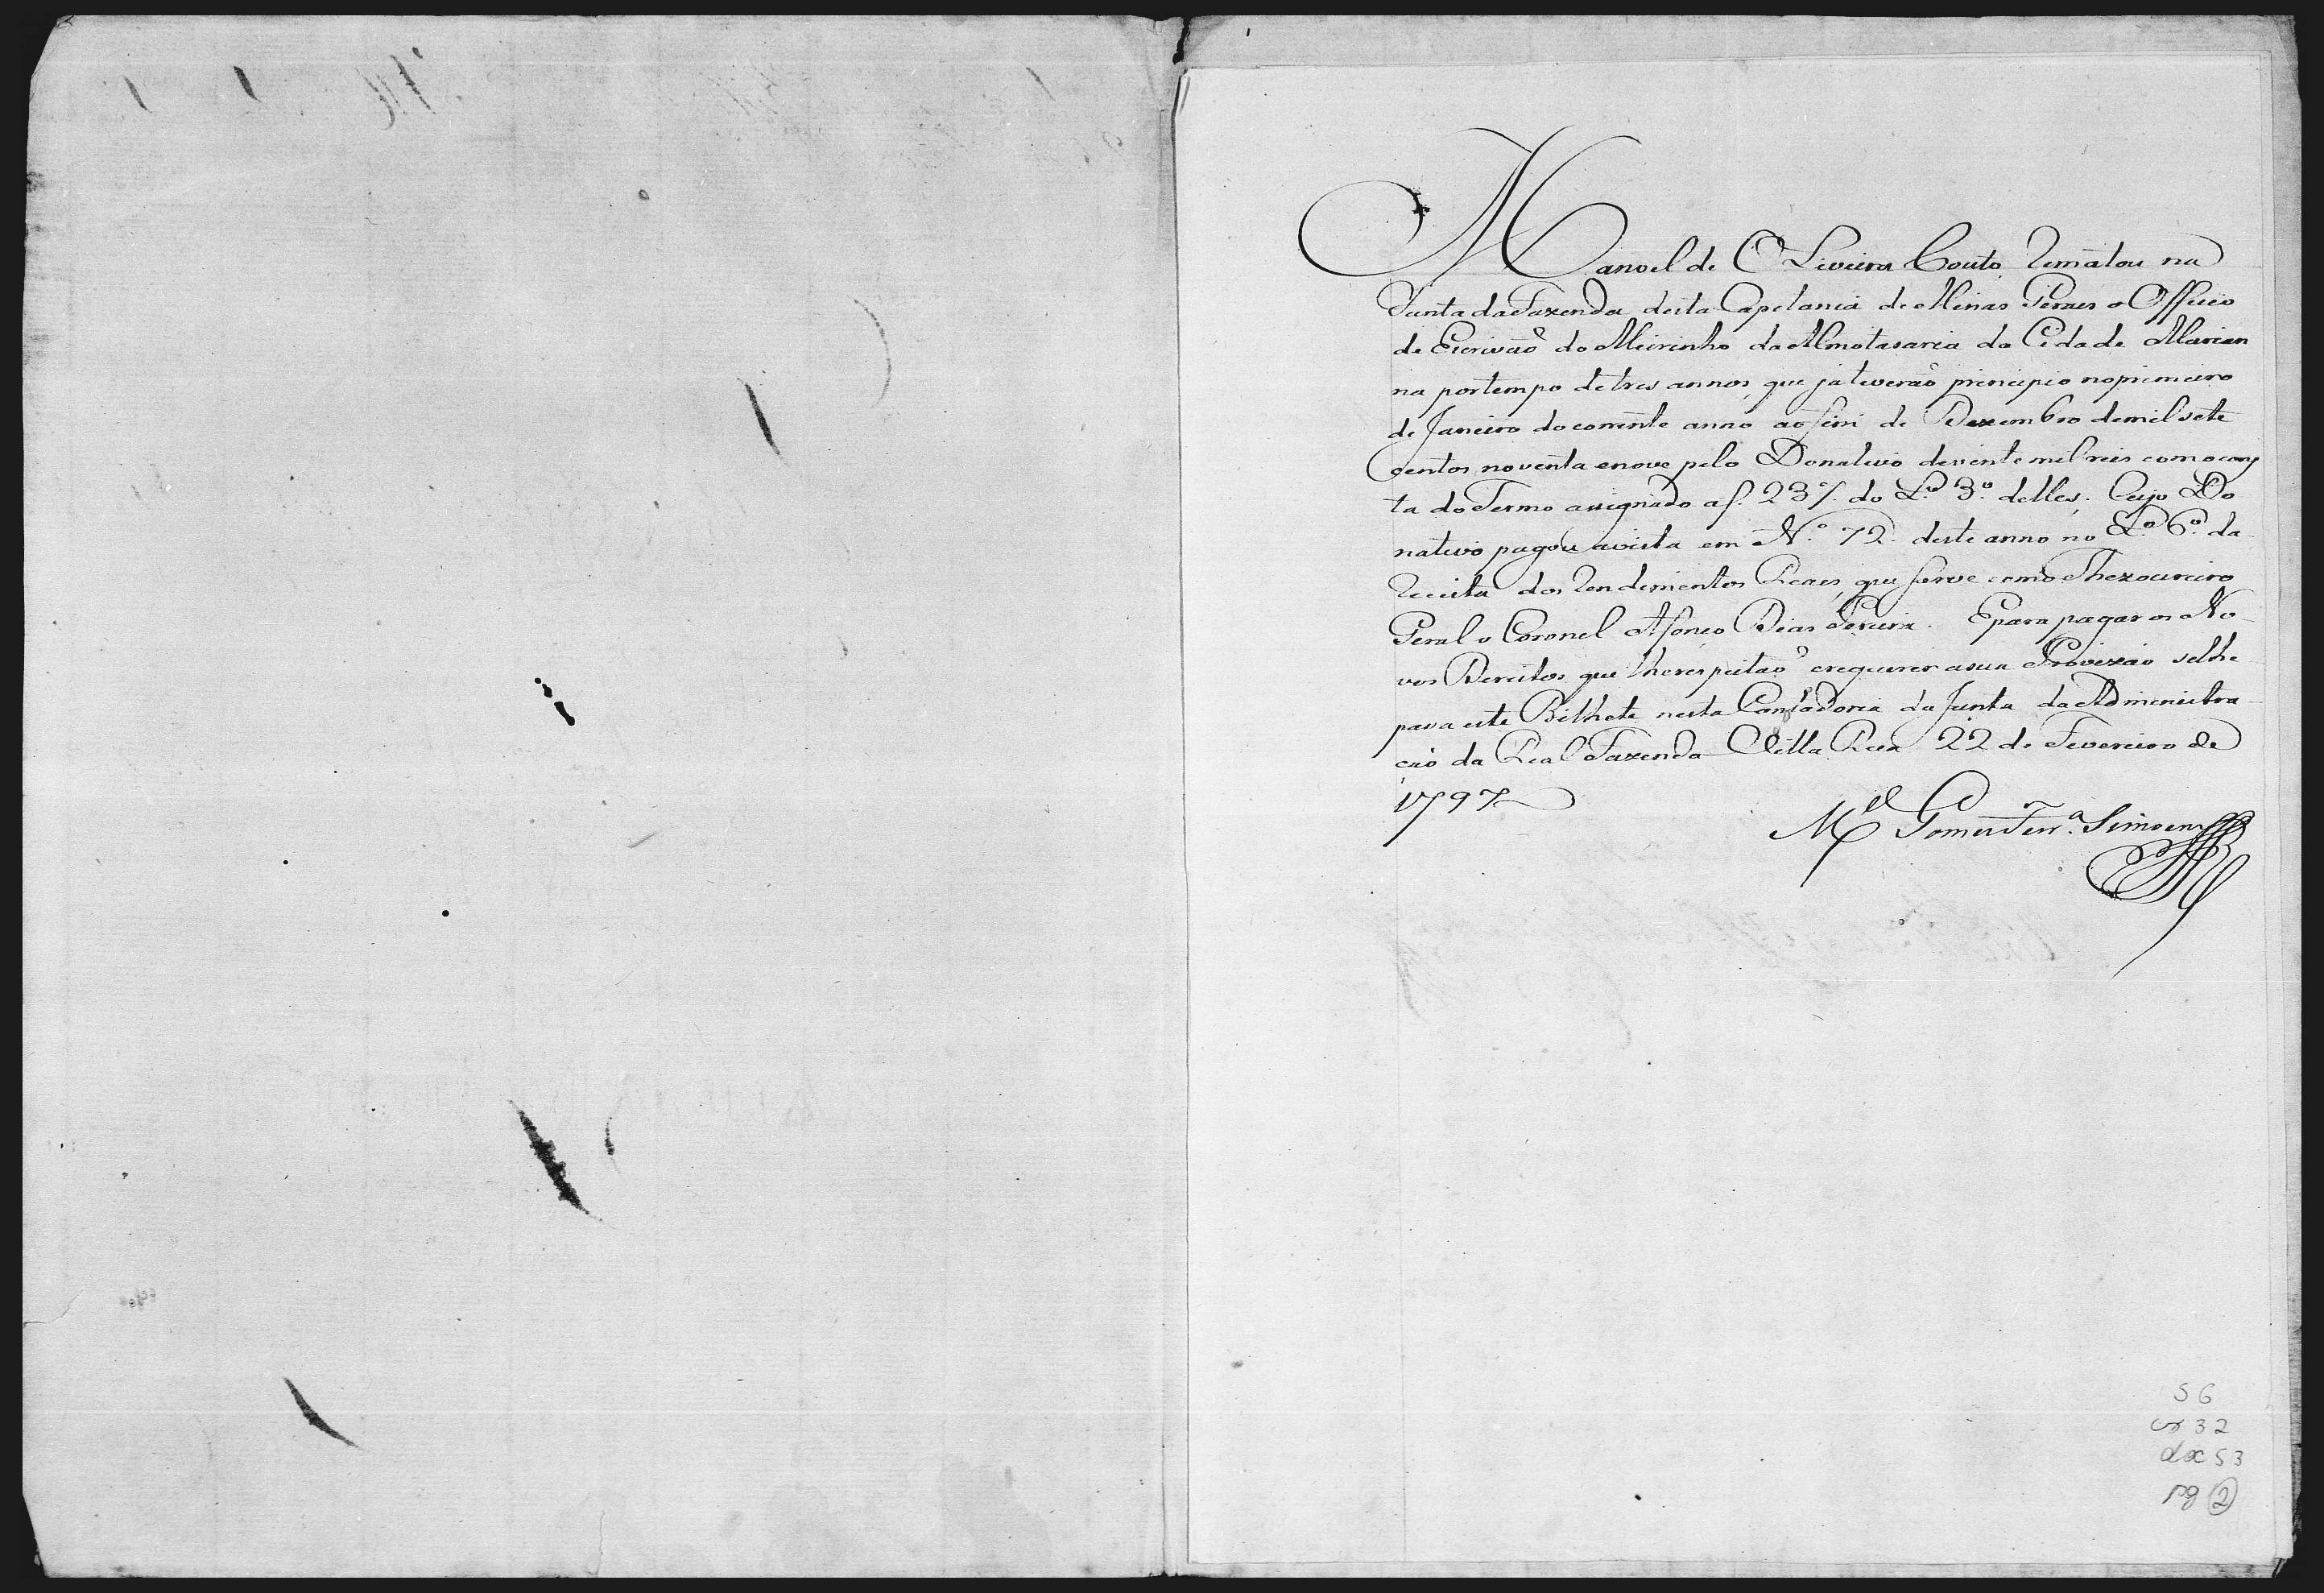 Manoel de OLiveira Couto Rematou na
Junta da Fazenda desta Capitania de Minas Geraes o Officio
de Escrivaõ do Meirinho da Almotasaria da Cidade Marian
na por tempo de tres annos, que ja tiveraõ principio no primeiro
de Janeiro do corrente anno ao fim de Dezembro de mil sete
centos noventa e nove pelo Donativo de vinte mil reis como cons
ta do Termo assignado a f. 237. do L.º 3.º delles, Cujo Do
nativo pagou avista em N.º 72 deste anno no L.º 6.º da
receita dos Rendimentos Reaes, que serve como Thezoureiro
Geral o Coronel Afonço Dias Pereira. E para pagar os No
vos Direitos que lhe respeitaõ e requerer a sua Provizaõ se lhe
passa este Bilhete nesta Contadoria da Junta da Administra
çaõ da Real Fazenda Villa Rica 22 de Fevereiro de
1797
M.el Gomes Ferr.ª Simoens
S 6
cx 32
doc 53
pg 2